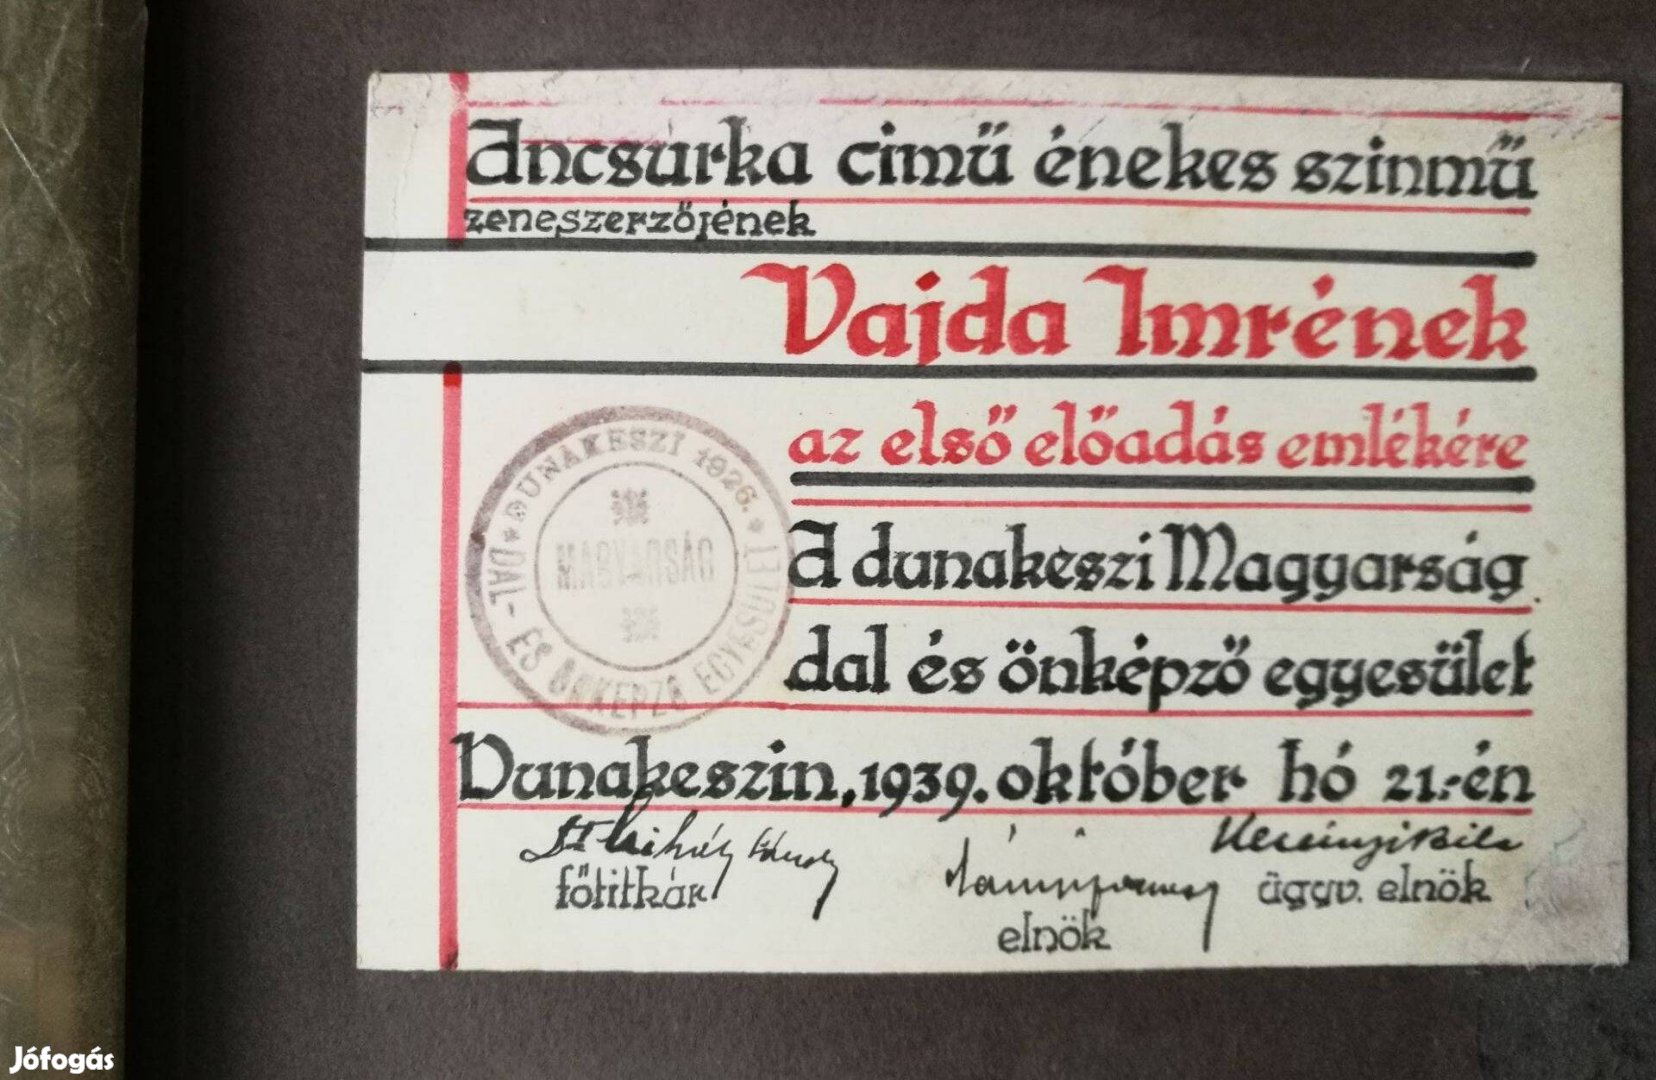 Ancsurka cimű énekes szinmű
zeneszerzőjének
Vajda Imrének
az első előadás emlékére
A dunakeszi Magyarság
dal és önképző egyesület
Dunakeszin, 1939. október hó 21.-én
főtitkár
elnök
ügyv. elnök
DUNAKESZI 1926.
DAL- ÉS ÖNKÉPZŐ EGYESÜLET
MAGYARSÁG
Jófogás